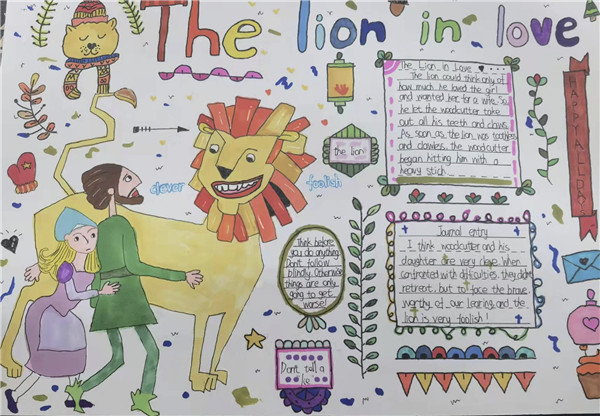 The lion in love
The Lion in Love
The lion could think only of
how much he loved the girl
and wanted her for a wife. So
he let the woodcutter take
out all his teeth and claws.
As soon as the lion was toothless
and clawless, the woodcutter
began hitting him with a
heavy stick.
the lion!
clever
foolish
HAPPY ALL DAY
Think before
you do anything
Don't follow
blindly. Otherwise
things are only
going to get
worse!
Journal entry
I think woodcutter and his
daughter are very clever. When
confronted with difficulties, they didn't
retreat, but to face the brave
worthy of our learing, and the
lion is very foolish!
Don't tell a
lie